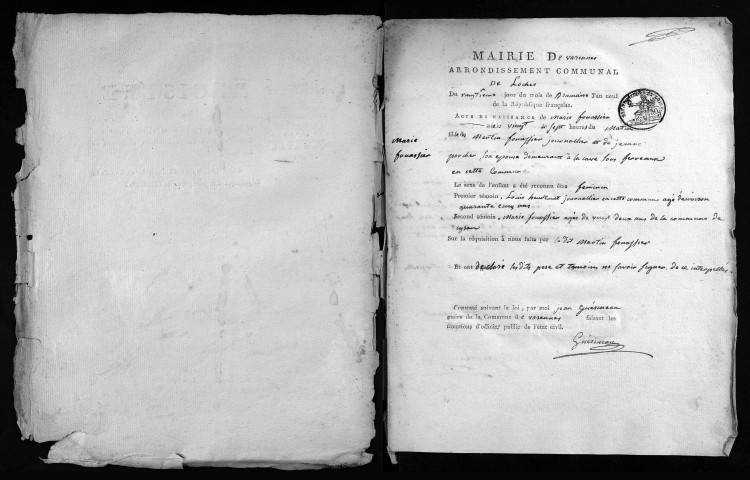 MAIRIE De varennes
ARRONDISSEMENT COMMUNAL
De Loches
Du vingtieme jour du mois de Brumaire l'an neuf
de la République française.
ACTE DE NAISSANCE de Marie fouassier
née vingt à sept heures du Matin
fille de Martin fouassier journallier et de jeanne
porcher son epouse demeurant à la cave
en cette Commune
Marie
fouassier
Le sexe de l'enfant a été reconnu être feminin
Premier témoin, Louis journallier en cette commune agé denviron
quarante cinq ans
Second témoin, Marie fouassier agée de vingt deux ans de la commune de
Sur la réquisition à nous faite par le dt Martin fouassier
Et ont declaré lesdits pere et temoins ne savoir signer de ce interpellés.
Constaté suivant la loi, par moi jean Guérineau
maire de la Commune de varennes faisant les
fonctions d'officier public de l'état civil.
Guérineau